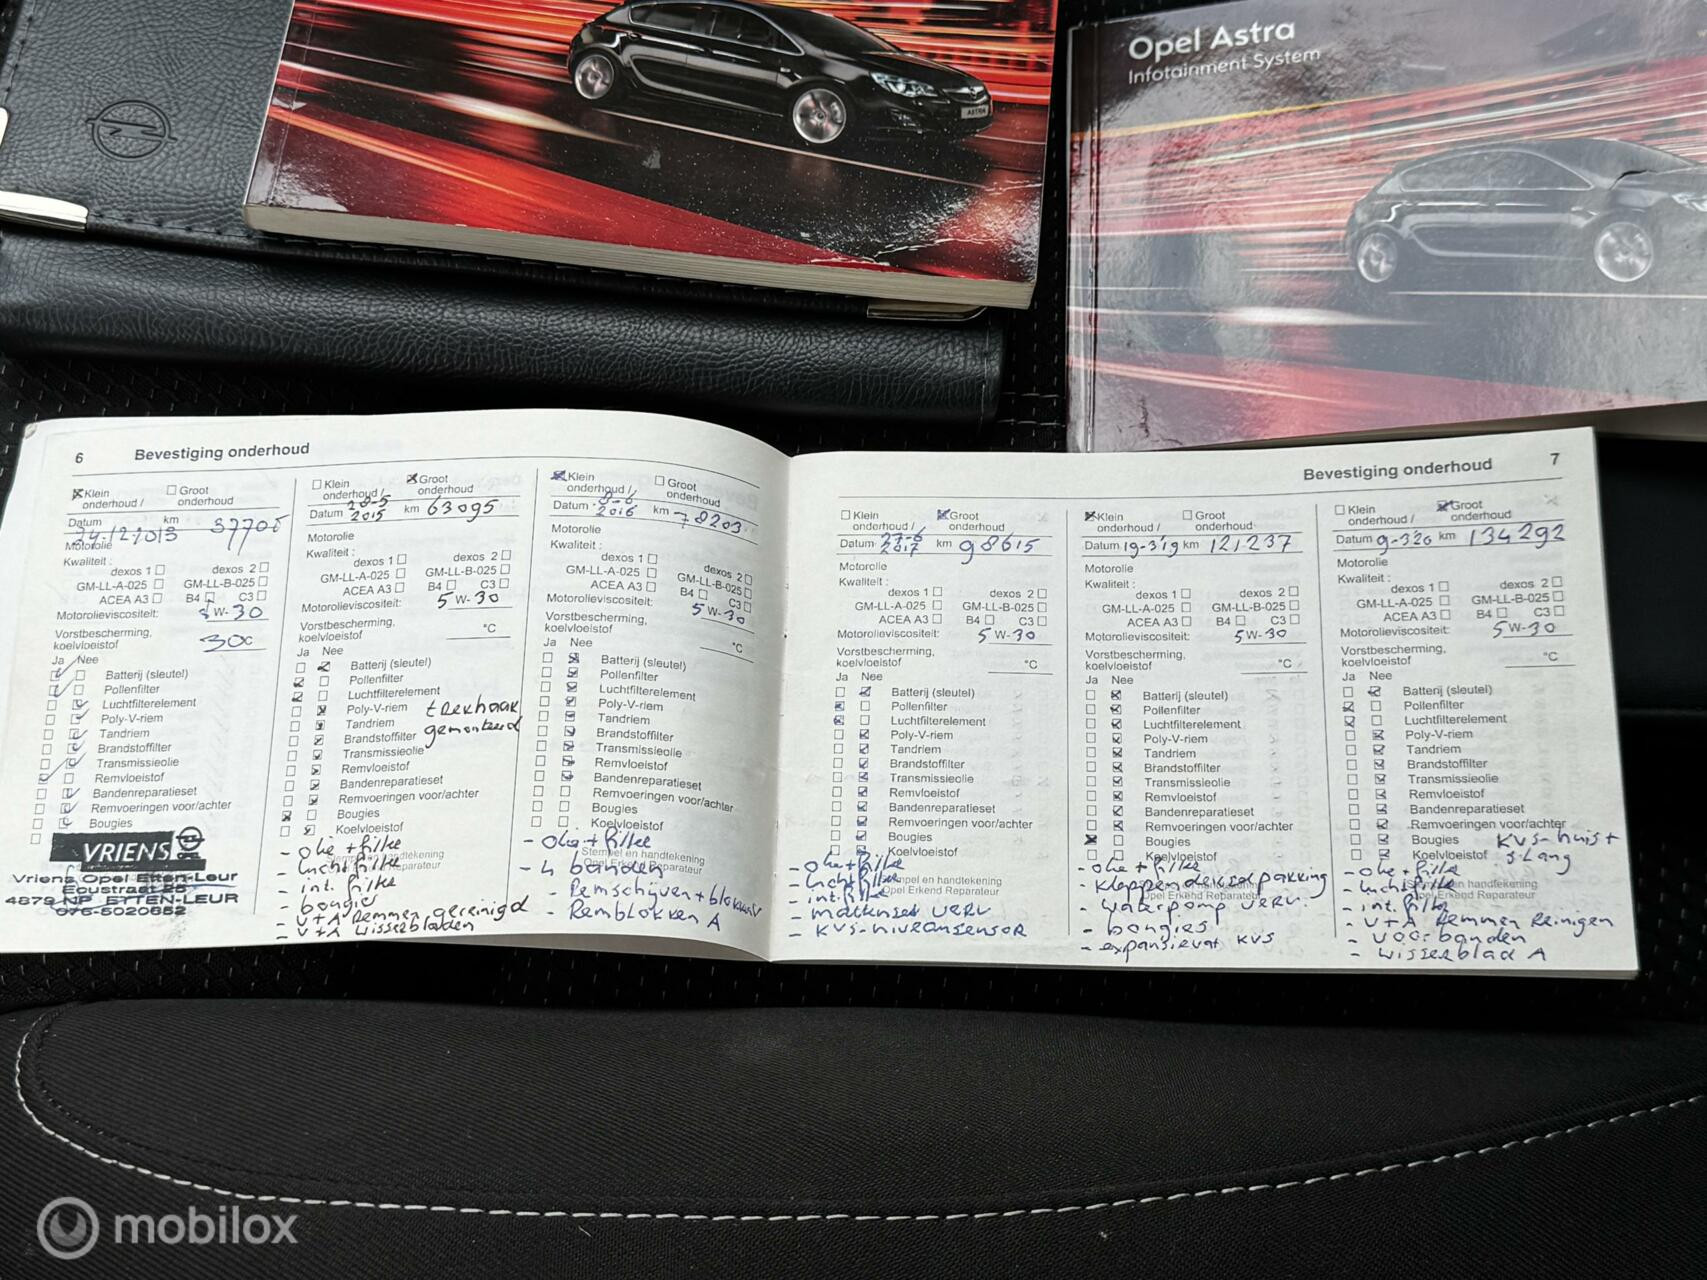 ASTRA
Opel Astra
Infotainment System
6 Bevestiging onderhoud
Klein onderhoud /
Groot onderhoud
Datum 24-12-2013 km
Motorolie
Kwaliteit :
dexos 1 dexos 2
GM-LL-A-025 GM-LL-B-025
ACEA A3 B4 C3
Motorolieviscositeit: 5 W-30
Vorstbescherming,
koelvloeistof 30 °C
Ja Nee
Batterij (sleutel)
Pollenfilter
Luchtfilterelement
Poly-V-riem
Tandriem
Brandstoffilter
Transmissieolie
Remvloeistof
Bandenreparatieset
Remvoeringen voor/achter
Bougies
VRIENS
Vriens Opel Etten-Leur
4879 NP ETTEN-LEUR
076-5020652
Klein onderhoud /
Groot onderhoud
Datum 28-5 2015 km 63095
Motorolie
Kwaliteit :
dexos 1 dexos 2
GM-LL-A-025 GM-LL-B-025
ACEA A3 B4 C3
Motorolieviscositeit: 5 W-30
Vorstbescherming,
koelvloeistof °C
Ja Nee
Batterij (sleutel)
Pollenfilter
Luchtfilterelement
Poly-V-riem trekhaak
Tandriem gemonteerd
Brandstoffilter
Transmissieolie
Remvloeistof
Bandenreparatieset
Remvoeringen voor/achter
Bougies
Koelvloeistof
Stempel en handtekening
Opel Erkend Reparateur
- olie + filter
- luchtfilter
- int. filter
- bougies
- V+A Remmen gereinigd
- V+A wisserbladen
Klein onderhoud /
Groot onderhoud
Datum 8-6 2016 km 78203
Motorolie
Kwaliteit :
dexos 1 dexos 2
GM-LL-A-025 GM-LL-B-025
ACEA A3 B4 C3
Motorolieviscositeit: 5 W-30
Vorstbescherming,
koelvloeistof °C
Ja Nee
Batterij (sleutel)
Pollenfilter
Luchtfilterelement
Poly-V-riem
Tandriem
Brandstoffilter
Transmissieolie
Remvloeistof
Bandenreparatieset
Remvoeringen voor/achter
Bougies
Koelvloeistof
Stempel en handtekening
Opel Erkend Reparateur
- olie + filter
- 4 banden
- Remschijven + blokken V
- Remblokken A
Bevestiging onderhoud 7
Klein onderhoud /
Groot onderhoud
Datum 27-6 2017 km 98615
Motorolie
Kwaliteit :
dexos 1 dexos 2
GM-LL-A-025 GM-LL-B-025
ACEA A3 B4 C3
Motorolieviscositeit: 5 W-30
Vorstbescherming,
koelvloeistof °C
Ja Nee
Batterij (sleutel)
Pollenfilter
Luchtfilterelement
Poly-V-riem
Tandriem
Brandstoffilter
Transmissieolie
Remvloeistof
Bandenreparatieset
Remvoeringen voor/achter
Bougies
Koelvloeistof
Stempel en handtekening
Opel Erkend Reparateur
- olie + filter
- luchtfilter
- int. filter
- mattenset verv
- KVS-niveausensor
Klein onderhoud /
Groot onderhoud
Datum 19-3'19 km 121237
Motorolie
Kwaliteit :
dexos 1 dexos 2
GM-LL-A-025 GM-LL-B-025
ACEA A3 B4 C3
Motorolieviscositeit: 5 W-30
Vorstbescherming,
koelvloeistof °C
Ja Nee
Batterij (sleutel)
Pollenfilter
Luchtfilterelement
Poly-V-riem
Tandriem
Brandstoffilter
Transmissieolie
Remvloeistof
Bandenreparatieset
Remvoeringen voor/achter
Bougies
Koelvloeistof
Opel Erkend Reparateur
- olie + filter
- kleppendekselpakking
- waterpomp verv.
- bougies
- expansievat KVS
Klein onderhoud /
Groot onderhoud
Datum 9-3'20 km 134292
Motorolie
Kwaliteit :
dexos 1 dexos 2
GM-LL-A-025 GM-LL-B-025
ACEA A3 B4 C3
Motorolieviscositeit: 5 W-30
Vorstbescherming,
koelvloeistof °C
Ja Nee
Batterij (sleutel)
Pollenfilter
Luchtfilterelement
Poly-V-riem
Tandriem
Brandstoffilter
Transmissieolie
Remvloeistof
Bandenreparatieset
Remvoeringen voor/achter
Bougies KVS-huis +
Koelvloeistof slang
Stempel en handtekening
Opel Erkend Reparateur
- olie + filter
- luchtfilter
- int. filter
- V+A Remmen Reinigen
- voorbanden
- wisserblad A
mobilox